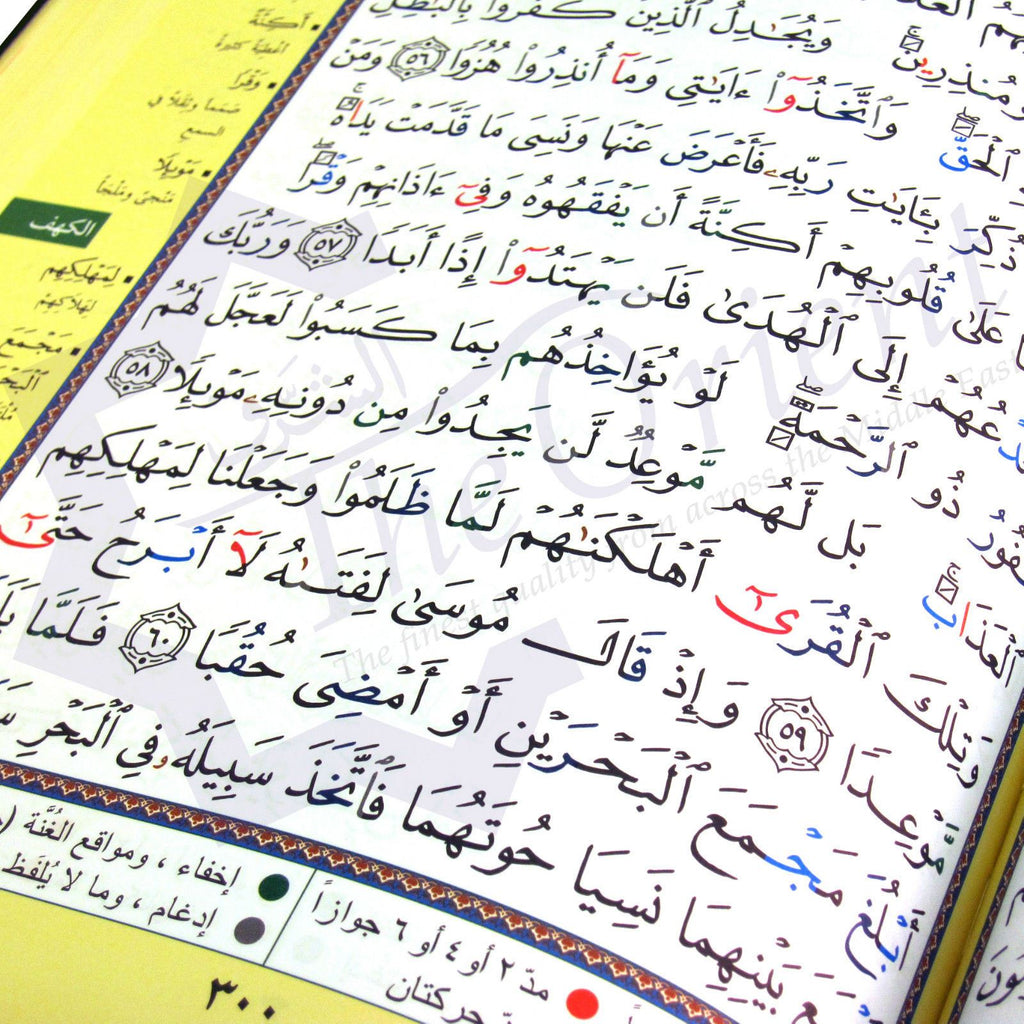 وَيُجَٰدِلُ ٱلَّذِينَ كَفَرُوا۟ بِٱلْبَٰطِلِ
ٱلْحَقَّ وَٱتَّخَذُوٓا۟ ءَايَٰتِى وَمَآ أُنذِرُوا۟ هُزُوًا ٥٦ وَمَنْ
ذُكِّرَ بِـَٔايَٰتِ رَبِّهِۦ فَأَعْرَضَ عَنْهَا وَنَسِىَ مَا قَدَّمَتْ يَدَاهُ
عَلَىٰ قُلُوبِهِمْ أَكِنَّةً أَن يَفْقَهُوهُ وَفِىٓ ءَاذَانِهِمْ وَقْرًا
إِلَى ٱلْهُدَىٰ فَلَن يَهْتَدُوٓا۟ إِذًا أَبَدًا ٥٧ وَرَبُّكَ
ذُو ٱلرَّحْمَةِ لَوْ يُؤَاخِذُهُم بِمَا كَسَبُوا۟ لَعَجَّلَ لَهُمُ
ٱلْعَذَابَ بَل لَّهُم مَّوْعِدٌ لَّن يَجِدُوا۟ مِن دُونِهِۦ مَوْئِلًا ٥٨
وَتِلْكَ ٱلْقُرَىٰٓ أَهْلَكْنَٰهُمْ لَمَّا ظَلَمُوا۟ وَجَعَلْنَا لِمَهْلِكِهِم
مَّوْعِدًا ٥٩ وَإِذْ قَالَ مُوسَىٰ لِفَتَىٰهُ لَآ أَبْرَحُ حَتَّىٰٓ
أَبْلُغَ مَجْمَعَ ٱلْبَحْرَيْنِ أَوْ أَمْضِىَ حُقُبًا ٦٠ فَلَمَّا
بَيْنِهِمَا نَسِيَا حُوتَهُمَا فَٱتَّخَذَ سَبِيلَهُۥ فِى ٱلْبَحْرِ
أَكِنَّةً
أغطية كثيرة
وَقْرًا
صمما وثقلا في
السمع
مَوْئِلًا
مَنْجى ومَلْجأ
الكهف
لِمَهْلِكِهِم
لهلاكهم
مَجْمَعَ
ٱلْبَحْرَيْنِ
مدّ ٢ أو ٤ أو ٦ جوازاً
حركتان
إخفاء ، ومواقع الغُنَّة
إدغام ، وما لا يُلفَظ
٣٠٠
The Orient
The finest quality from across the Middle East